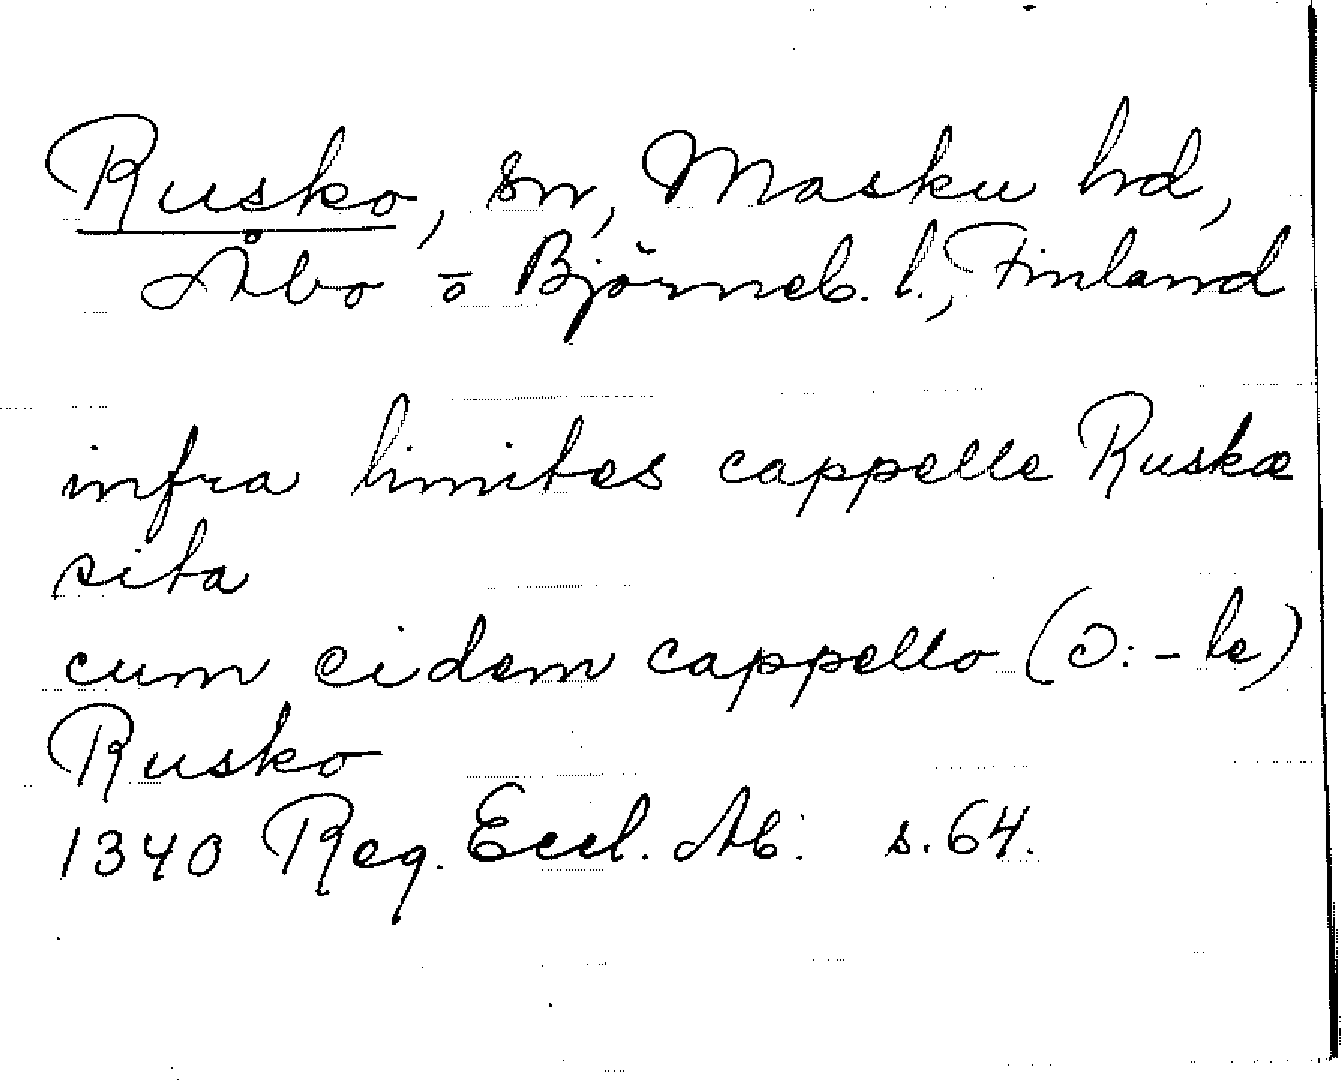 Rusko, sn, Masku hd,
Åbo o Björneb. l., Finland
infra limites cappelle Ruskæ
sita
cum eidem cappello (ɔ: -le)
Rusko
1340 Reg. Eccl. Ab. s. 64.